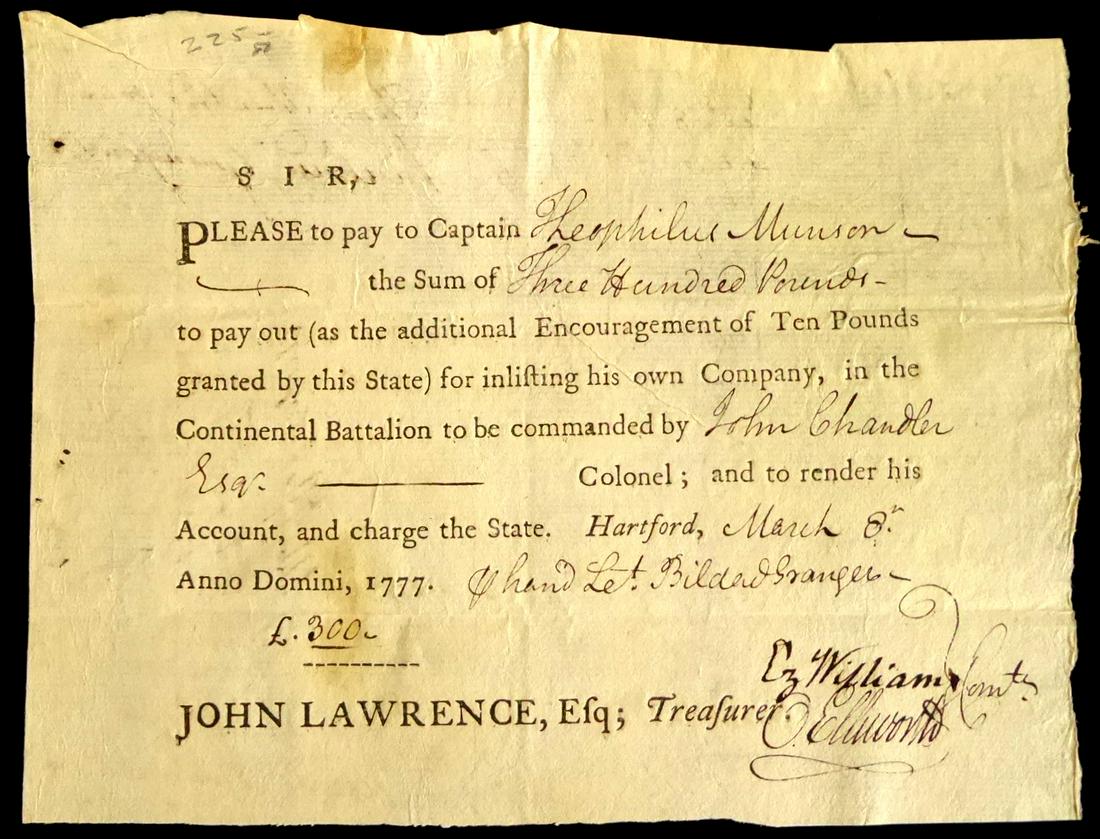 225
S I R,
PLEASE to pay to Captain Theophilus Munson
the Sum of Three Hundred Pounds-
to pay out (as the additional Encouragement of Ten Pounds
granted by this State) for inliſting his own Company, in the
Continental Battalion to be commanded by John Chandler
Esqr. Colonel; and to render his
Account, and charge the State. Hartford, March 8th
Anno Domini, 1777. ⅌ hand Let. Bildad Granger
£. 300
JOHN LAWRENCE, Eſq; Treaſurer.
Ez Williams
O. Ellsworth Comte